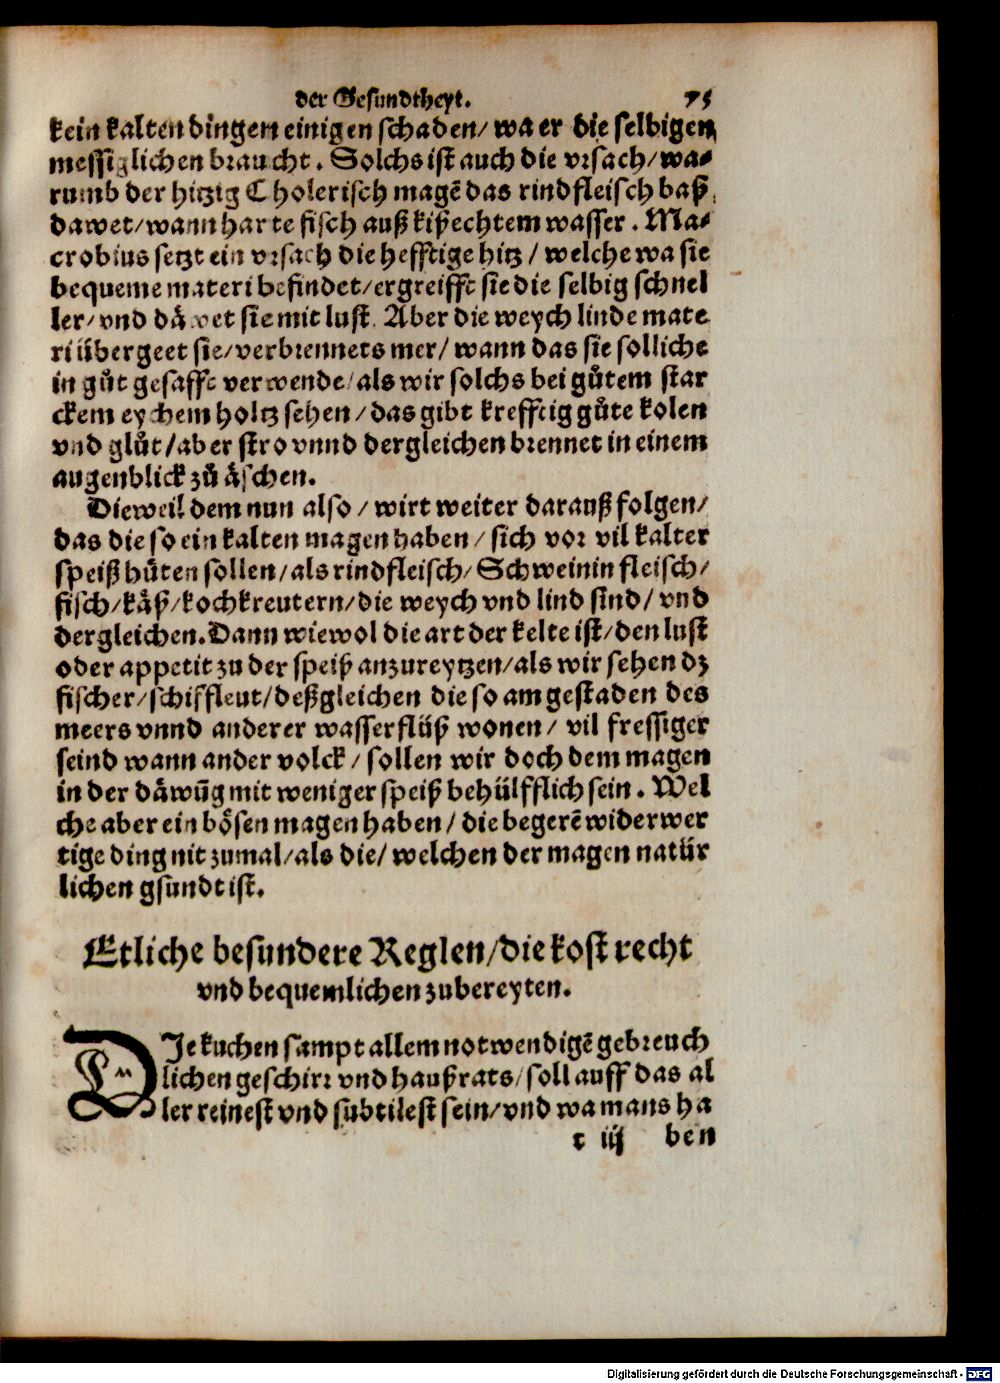 der Gesundtheyt. 75
kein kalten dingen einigen schaden/ wa er die selbigen
messiglichen braucht. Solchs ist auch die vrsach/ wa-
rumb der hitzig Cholerisch magē das rindfleisch baß
dawet/ wann harte fisch auß kißechtem wasser. Ma-
crobius setzt ein vrsach die hefftige hitz/ welche wa sie
bequeme materi befindet/ ergreifft sie die selbig schnel
ler/ vnd däwet sie mit lust. Aber die weych linde mate
ri übergeet sie/ verbrennets mer/ wann das sie solliche
in gůt gesafft verwende/ als wir solchs bei gůtem star
ckem eychem holtz sehen/ das gibt krefftig gůte kolen
vnd glůt/ aber stro vnnd dergleichen brennet in einem
augenblick zů äschen.
Dieweil dem nun also/ wirt weiter darauß folgen/
das die so ein kalten magen haben/ sich vor vil kalter
speiß hüten sollen/ als rindfleisch/ Schweinin fleisch/
fisch/ käß/ kochkreutern/ die weych vnd lind sind/ vnd
dergleichen. Dann wiewol die art der kelte ist/ den lust
oder appetit zu der speiß anzureytzen/ als wir sehen dz
fischer/ schiffleut/ deßgleichen die so am gestaden des
meers vnnd anderer wasserflüß wonen/ vil fressiger
seind wann ander volck/ sollen wir doch dem magen
in der däwūg mit weniger speiß behülfflich sein. Wel
che aber ein bösen magen haben/ die begerē widerwer
tige ding nit zumal/ als die/ welchen der magen natür
lichen gsundt ist.
Etliche besundere Reglen/ die kost recht
vnd bequemlichen zubereyten.
DIe kuchen sampt allem notwendigē gebreuch
lichen geschirr vnd haußrats/ soll auff das al
ler reinest vnd subtilest sein/ vnd wa mans ha
t iij ben
Digitalisierung gefördert durch die Deutsche Forschungsgemeinschaft - DFG